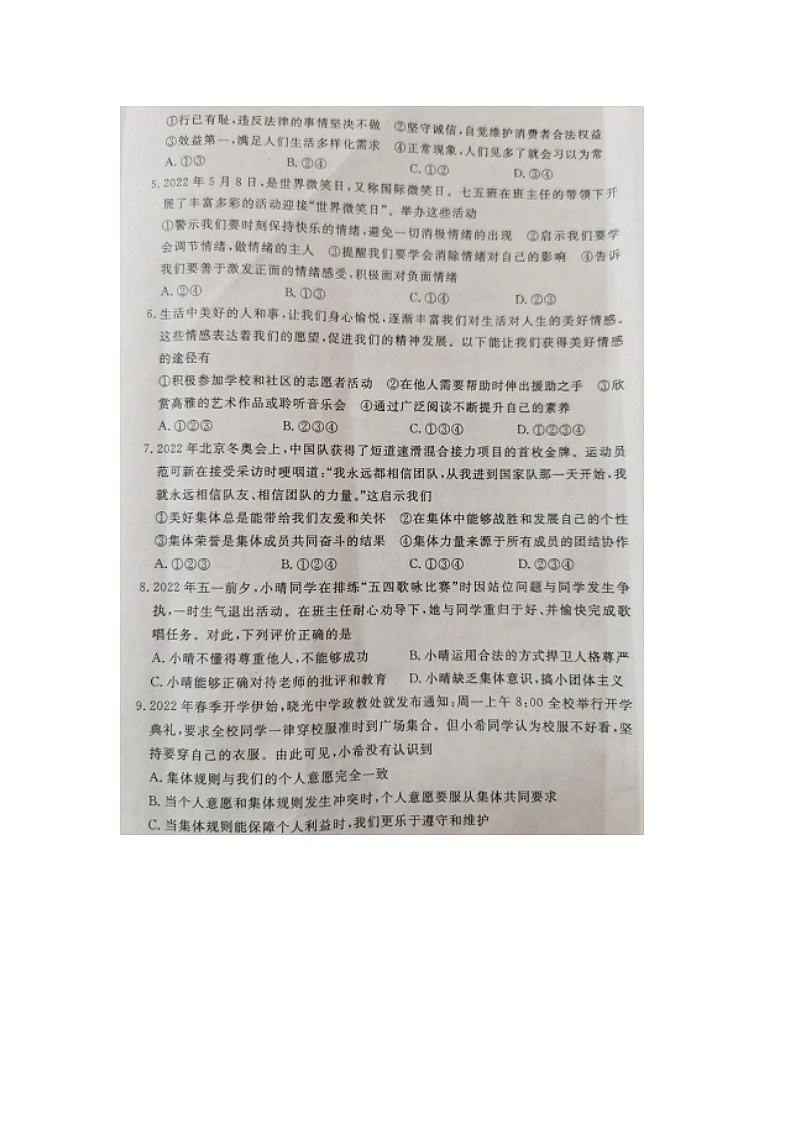 ①行已有耻,违反法律的事情坚决不做 ②坚守诚信,自觉维护消费者合法权益
③效益第一,满足人们生活多样化需求 ④正常现象,人们见多了就会习以为常
A.①③ B.②④ C.①② D.③④
5.2022年5月8日,是世界微笑日,又称国际微笑日。七五班在班主任的带领下开
展了丰富多彩的活动迎接“世界微笑日”。举办这些活动
①警示我们要时刻保持快乐的情绪,避免一切消极情绪的出现 ②启示我们要学
会调节情绪,做情绪的主人 ③提醒我们要学会消除情绪对自己的影响 ④告诉
我们要善于激发正面的情绪感受,积极面对负面情绪
A.②④ B.①③ C.①④ D.②③
6.生活中美好的人和事,让我们身心愉悦,逐渐丰富我们对生活对人生的美好情感。
这些情感表达着我们的愿望,促进我们的精神发展。以下能让我们获得美好情感
的途径有
①积极参加学校和社区的志愿者活动 ②在他人需要帮助时伸出援助之手 ③欣
赏高雅的艺术作品或聆听音乐会 ④通过广泛阅读不断提升自己的素养
A.①②③ B.②③④ C.①③④ D.①②③④
7.2022年北京冬奥会上,中国队获得了短道速滑混合接力项目的首枚金牌。运动员
范可新在接受采访时哽咽道:“我永远都相信团队,从我进到国家队那一天开始,我
就永远相信队友、相信团队的力量。”这启示我们
①美好集体总是能带给我们友爱和关怀 ②在集体中能够战胜和发展自己的个性
③集体荣誉是集体成员共同奋斗的结果 ④集体力量来源于所有成员的团结协作
A.①②③ B.①②④ C.①③④ D.②③④
8.2022年五一前夕,小晴同学在排练“五四歌咏比赛”时因站位问题与同学发生争
执,一时生气退出活动。在班主任耐心劝导下,她与同学重归于好、并愉快完成歌
唱任务。对此,下列评价正确的是
A.小晴不懂得尊重他人,不能够成功 B.小晴运用合法的方式捍卫人格尊严
C.小晴能够正确对待老师的批评和教育 D.小晴缺乏集体意识,搞小团体主义
9.2022年春季开学伊始,晓光中学政教处就发布通知:周一上午8:00全校举行开学
典礼,要求全校同学一律穿校服准时到广场集合。但小希同学认为校服不好看,坚
持要穿自己的衣服。由此可见,小希没有认识到
A.集体规则与我们的个人意愿完全一致
B.当个人意愿和集体规则发生冲突时,个人意愿要服从集体共同要求
C.当集体规则能保障个人利益时,我们更乐于遵守和维护